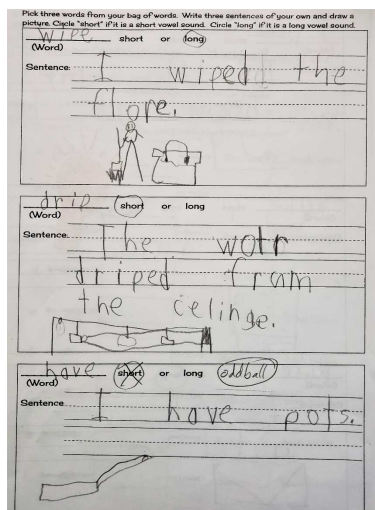 Pick three words from your bag of words. Write three sentences of your own and draw a
picture. Circle "short" if it is a short vowel sound. Circle "long" if it is a long vowel sound.
wipe short or long
(Word)
Sentence: I wiped the
flore.
drip short or long
(Word)
Sentence: The wotr
driped fram
the celinge.
have short or long oddball
(Word)
Sentence I have pots.